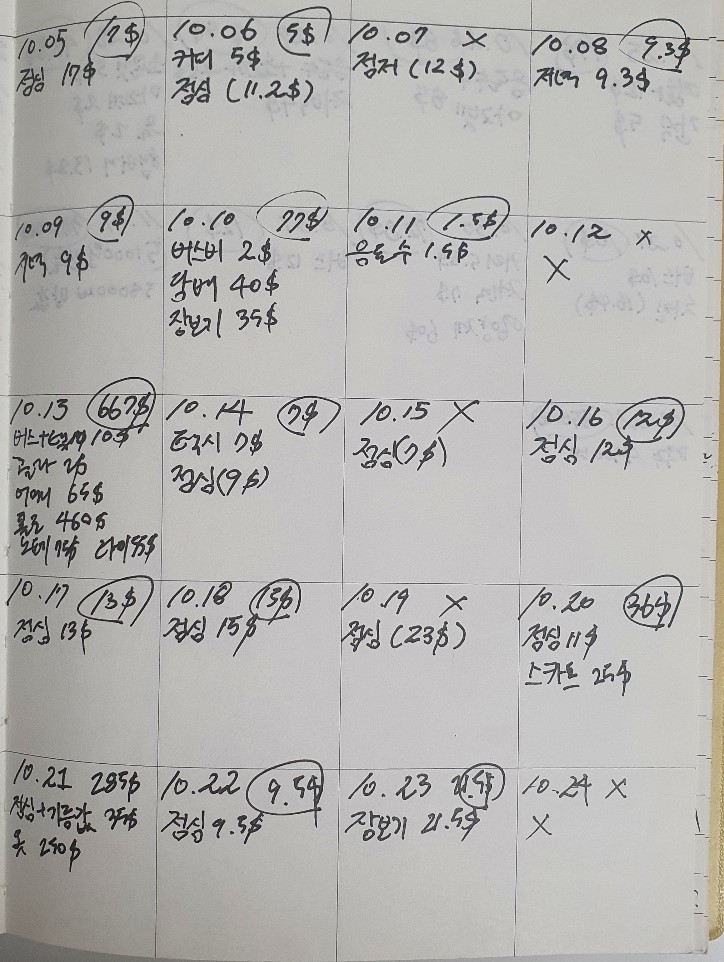 10.05 17$
점심 17$
10.06 5$
커피 5$
점심 (11.2$)
10.07 X
점저 (12$)
10.08 9.3$
저녁 9.3$
10.09 9$
저녁 9$
10.10 77$
버스비 2$
담배 40$
장보기 35$
10.11 1.5$
음료수 1.5$
10.12 X
X
10.13 667$
버스+택시 10$
콜라 2$
65$
460$
75$
10.14 7$
택시 7$
점심(9$)
10.15 X
점심(7$)
10.16 12$
점심 12$
10.17 13$
점심 13$
10.18 13$
점심 15$
10.19 X
점심 (23$)
10.20 36$
점심 11$
스카프 25$
10.21 285$
점심+기름값 35$
옷 250$
10.22 9.5$
점심 9.5$
10.23 21.5$
장보기 21.5$
10.24 X
X